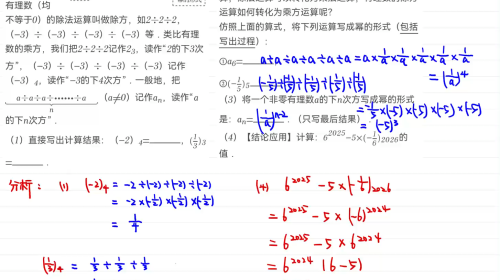 有理数（均
不等于0）的除法运算叫做除方，如2÷2÷2，
（−3）÷（−3）÷（−3）÷（−3）等．类比有理
数的乘方，我们把2÷2÷2记作2₃，读作“2的下3次
方”，（−3）÷（−3）÷（−3）÷（−3）记作
（−3）₄，读作“−3的下4次方”．一般地，把
a÷a÷a÷……÷a（a≠0）记作aₙ，读作“a
n
的下n次方”．
（1）直接写出计算结果：（−2）₄=____，(1/3)₃
=____．
运算如何转化为乘方运算呢？
仿照上面的算式，将下列运算写成幂的形式（包括
写出过程）：
①a₆= a÷a÷a÷a÷a÷a = a×1/a×1/a×1/a×1/a×1/a
= (1/a)⁴
②(−1/5)₅ (−1/5)÷(−1/5)÷(−1/5)÷(−1/5)÷(−1/5)
= −1/5×(−5)×(−5)×(−5)×(−5)
= (−5)³
（3）将一个非零有理数a的下n次方写成幂的形式
是：aₙ= (1/a)ⁿ⁻² ．（只写最后结果）
（4）【结论应用】计算：6²⁰²⁵−5×(−1/6)₂₀₂₆的
值．
分析： (1) (−2)₄ = −2÷(−2)÷(−2)÷(−2)
= −2×(−1/2)×(−1/2)×(−1/2)
= 1/4
(1/3)₄ = 1/3÷1/3÷1/3
(4) 6²⁰²⁵−5×(−1/6)₂₀₂₆
= 6²⁰²⁵−5×(−6)²⁰²⁴
= 6²⁰²⁵−5×6²⁰²⁴
= 6²⁰²⁴(6−5)